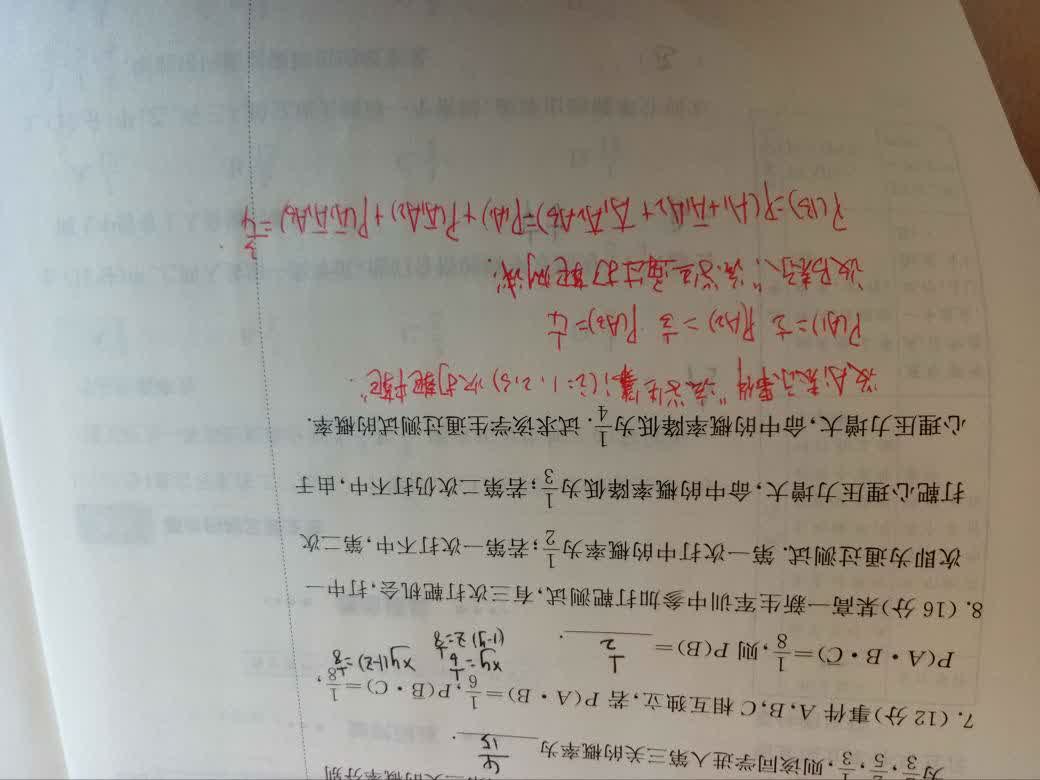 则该同学进入第三关的概率为
7. (12 分)事件 A,B,C 相互独立,若 P(A·B)=1/6,P(B̄·C)=1/8,
xy=1/6 xy(1-z)=1/8
(1-y)z=1/8
P(A·B·C̄)=1/8,则 P(B)= 1/2 .
8. (16 分)某高一新生军训中参加打靶测试,有三次打靶机会,打中一
次即为通过测试. 第一次打中的概率为1/2;若第一次打不中,第二次
打靶心理压力增大,命中的概率降低为1/3;若第二次仍打不中,由于
心理压力增大,命中的概率降低为1/4. 试求该学生通过测试的概率.
设Ai表示事件"该学生第i(i=1,2,3)次打靶中靶".
P(A1)=1/2 P(A2)=1/3 P(A3)=1/4
设B表示"该学生通过打靶测试".
P(B)=P(A1+Ā1A2+Ā1Ā2A3)=P(A1)+P(Ā1A2)+P(Ā1Ā2A3)=3/4